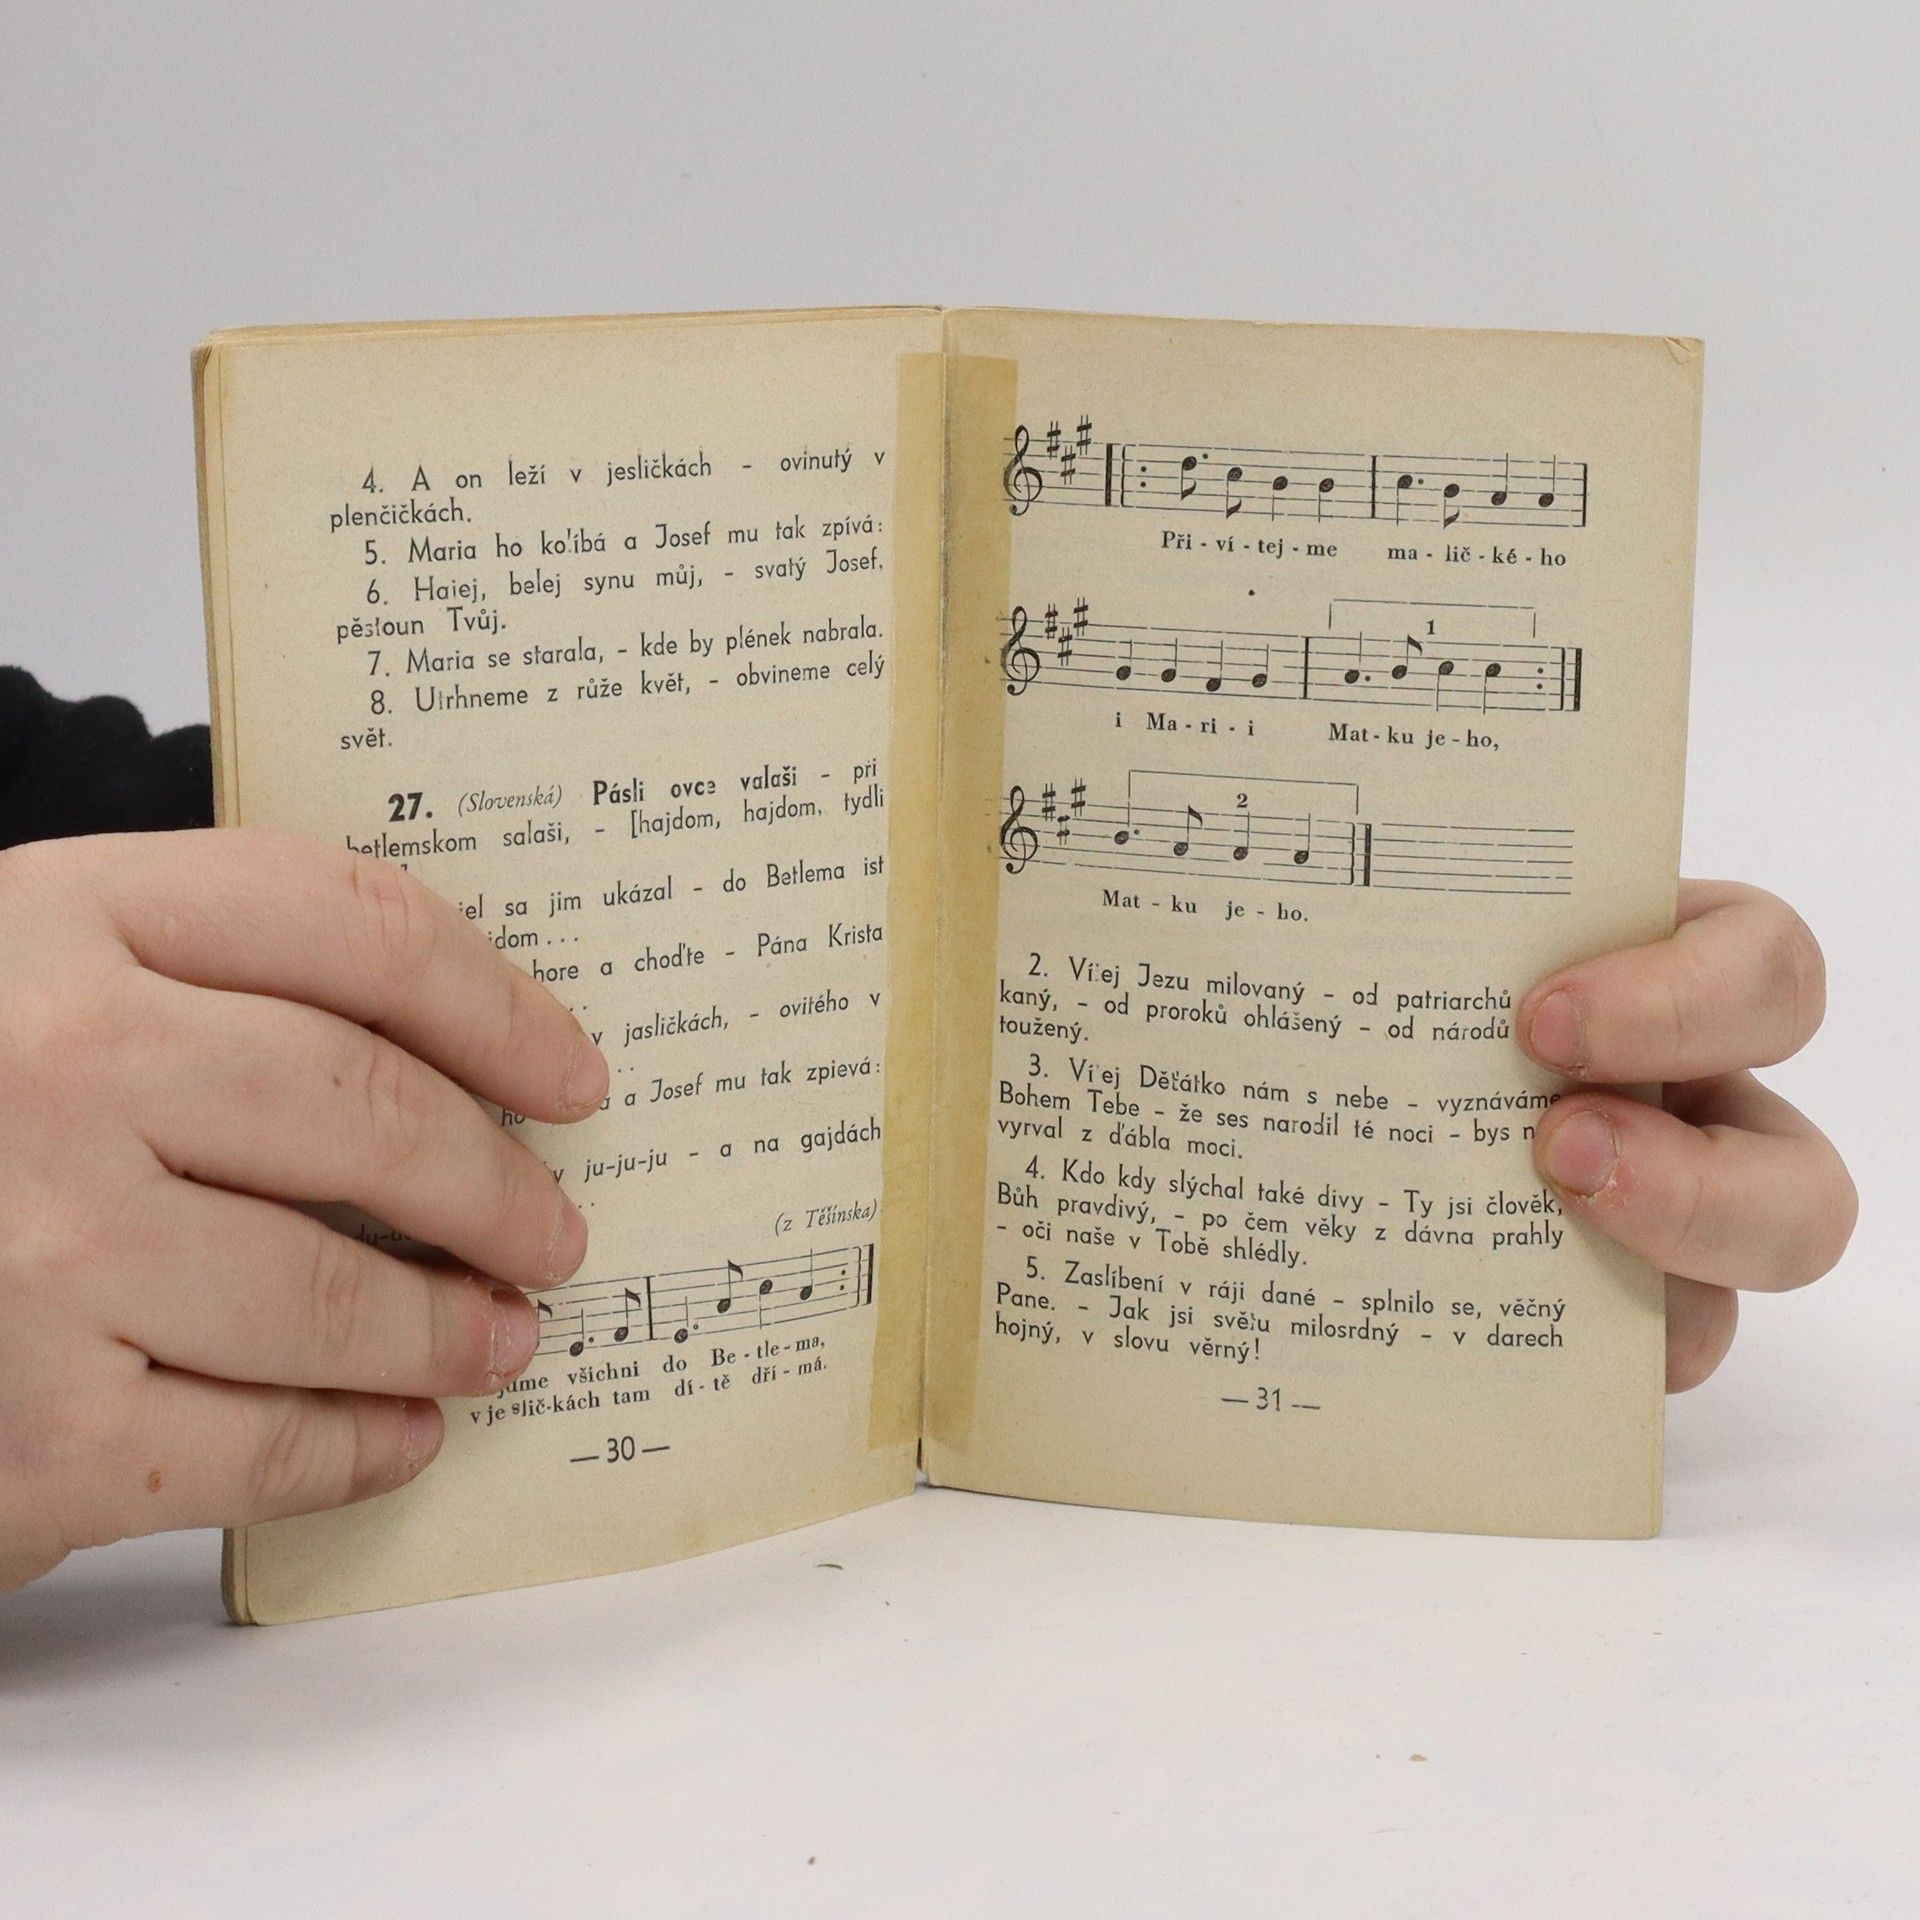 4. A on leží v jesličkách – ovinutý v
plenčičkách.
5. Maria ho kolíbá a Josef mu tak zpívá:
6. Hajej, belej synu můj, – svatý Josef,
pěstoun Tvůj.
7. Maria se starala, – kde by plének nabrala.
8. Utrhneme z růže květ, – obvineme celý
svět.
27. (Slovenská) Pásli ovce valaši – při
betlemskom salaši, – [hajdom, hajdom, tydli
sa jim ukázal – do Betlema ist
hore a choďte – Pána Krista
v jasličkách, – ovitého v
a Josef mu tak zpievá:
ju-ju-ju – a na gajdách
(z Těšínska)
všichni do Be - tle - ma,
v je slič-kách tam dí - tě dří - má.
— 30 —
Při - ví - tej - me ma - lič - ké - ho
1
i Ma - ri - i Mat - ku je - ho,
2
Mat - ku je - ho.
2. Vítej Jezu milovaný – od patriarchů
kaný, – od proroků ohlášený – od národů
toužený.
3. Vítej Děťátko nám s nebe – vyznáváme
Bohem Tebe – že ses narodil té noci – bys
vyrval z ďábla moci.
4. Kdo kdy slýchal také divy – Ty jsi člověk,
Bůh pravdivý, – po čem věky z dávna prahly
– oči naše v Tobě shlédly.
5. Zaslíbení v ráji dané – splnilo se, věčný
Pane. – Jak jsi světu milosrdný – v darech
hojný, v slovu věrný!
— 31 —